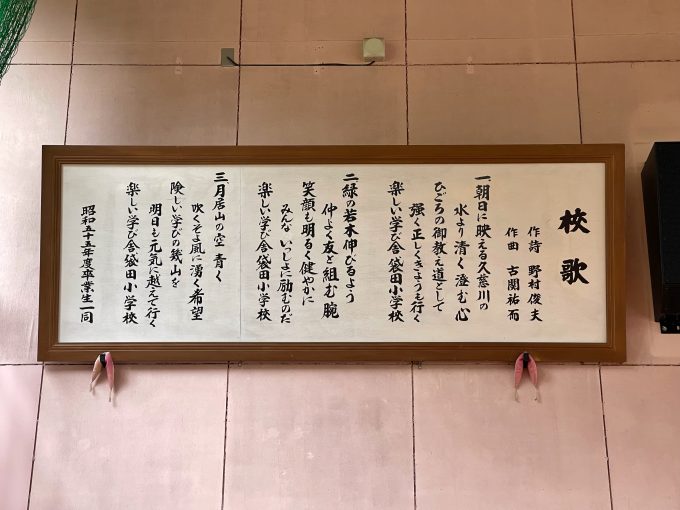 校歌
作詩 野村俊夫
作曲 古関祐而
一、朝日に映える久慈川の
水より清く澄む心
ひごろの御教え道として
強く正しくきょうも行く
楽しい学び舎袋田小学校
二、緑の若木伸びるよう
仲よく友と組む腕
笑顔も明るく健やかに
みんな いっしょに励むのだ
楽しい学び舎袋田小学校
三、月居山の空 青く
吹くそよ風に湧く希望
険しい学びの幾山を
明日も元気に越えて行く
楽しい学び舎袋田小学校
昭和五十五年度卒業生一同